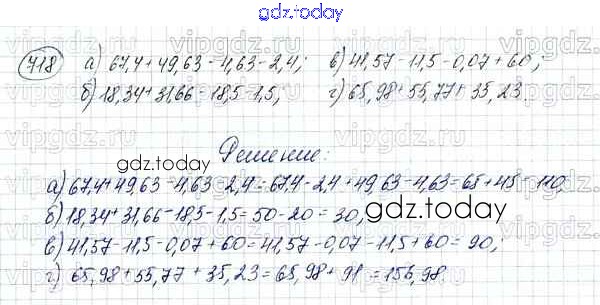 gdz.today
718 а) 67,4+49,63-4,63-2,4; в) 41,57-11,5-0,07+60;
б) 18,34+31,66-18,5-1,5; г) 65,98+55,77+35,23.
Решение:
gdz.today
а) 67,4+49,63-4,63-2,4=67,4-2,4+49,63-4,63=65+45=110;
б) 18,34+31,66-18,5-1,5=50-20=30;
gdz.today
в) 41,57-11,5-0,07+60=41,57-0,07-11,5+60=90;
г) 65,98+55,77+35,23=65,98+91=156,98
vipgdz.ru